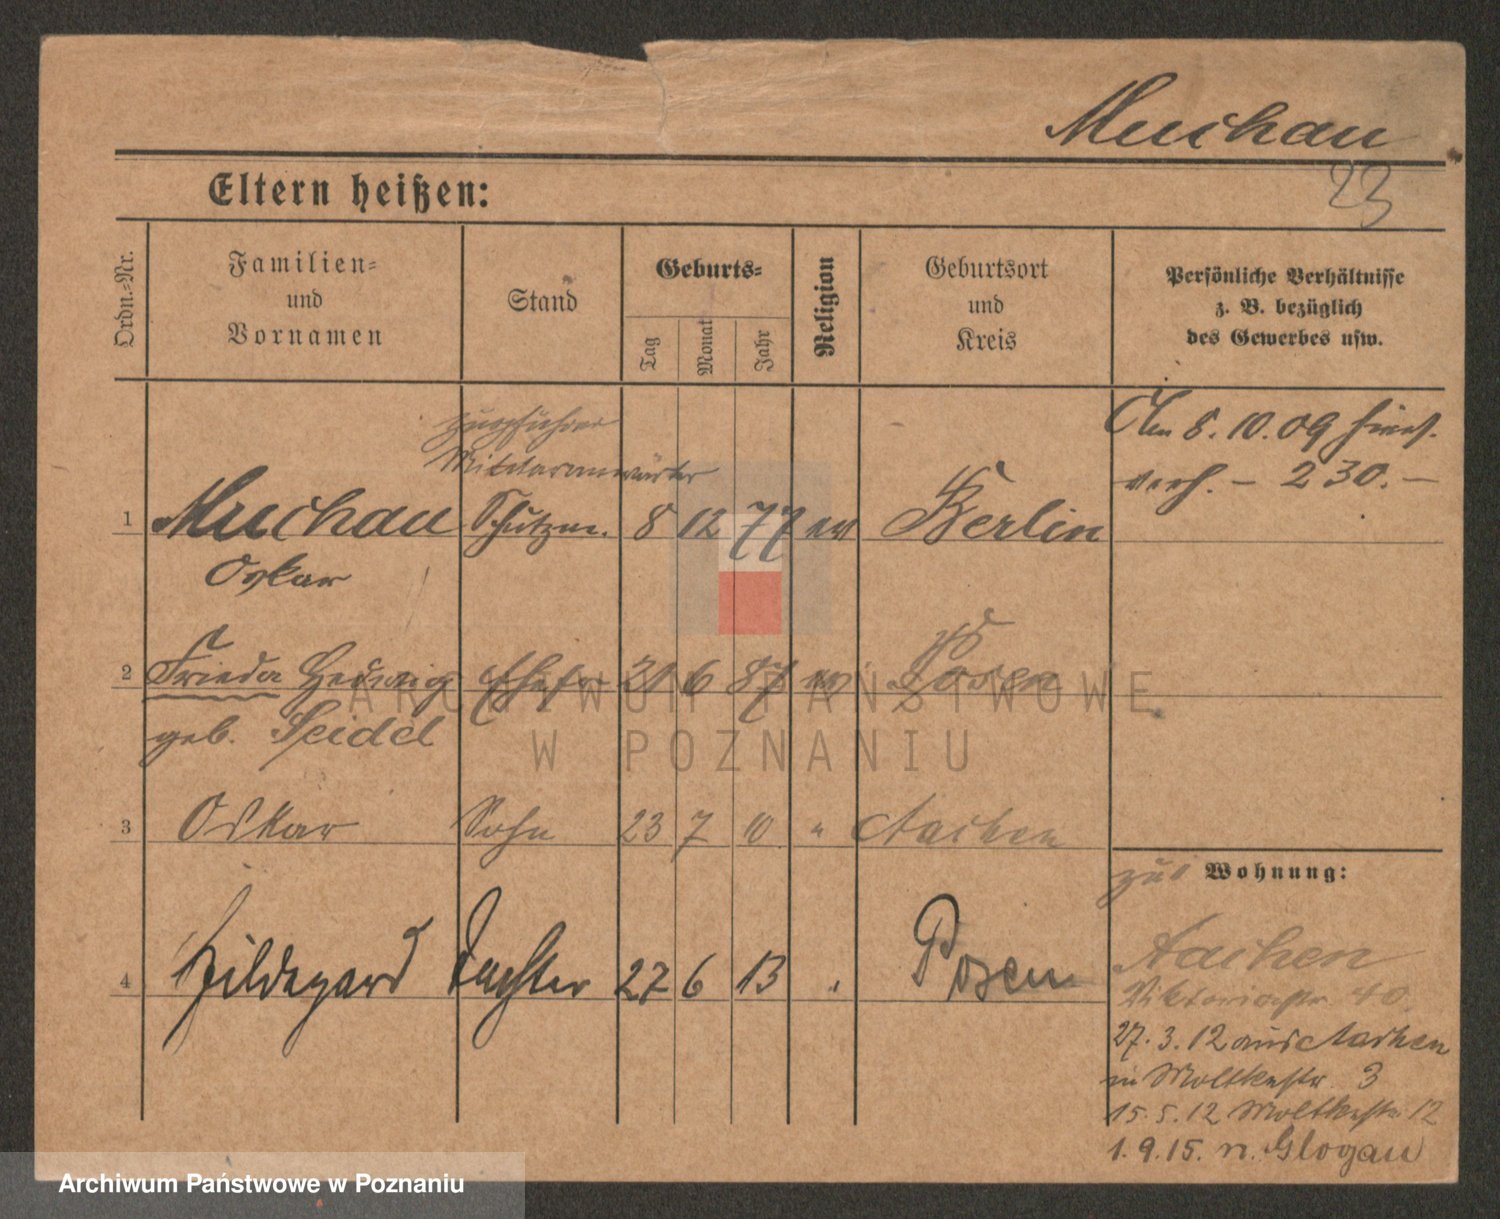 Muchau
23
Eltern heißen:
Ordn.-Nr.
Familien-
und
Vornamen
Stand
Geburts-
Tag
Monat
Jahr
Religion
Geburtsort
und
Kreis
Persönliche Verhältnisse
z. B. bezüglich
des Gewerbes usw.
Militäranwärter
1 Muchau Schutzm. 8 12 77 ev Berlin
Oskar
Am 8.10.09
verh. – 230.–
2 Frieda Hedwig Ehefr 21 6 87 ev Posen
geb. Seidel
3 Oskar Sohn 23 7 10 " Aachen
4 Hildegard Tochter 27 6 13 " Posen
Wohnung:
Aachen
Viktoriastr 40
27.3.12 aus Aachen
in Moltkestr. 3
15.5.12 Moltkestr 12
1.9.15. n. Glogau
ARCHIWUM PAŃSTWOWE
W POZNANIU
Archiwum Państwowe w Poznaniu